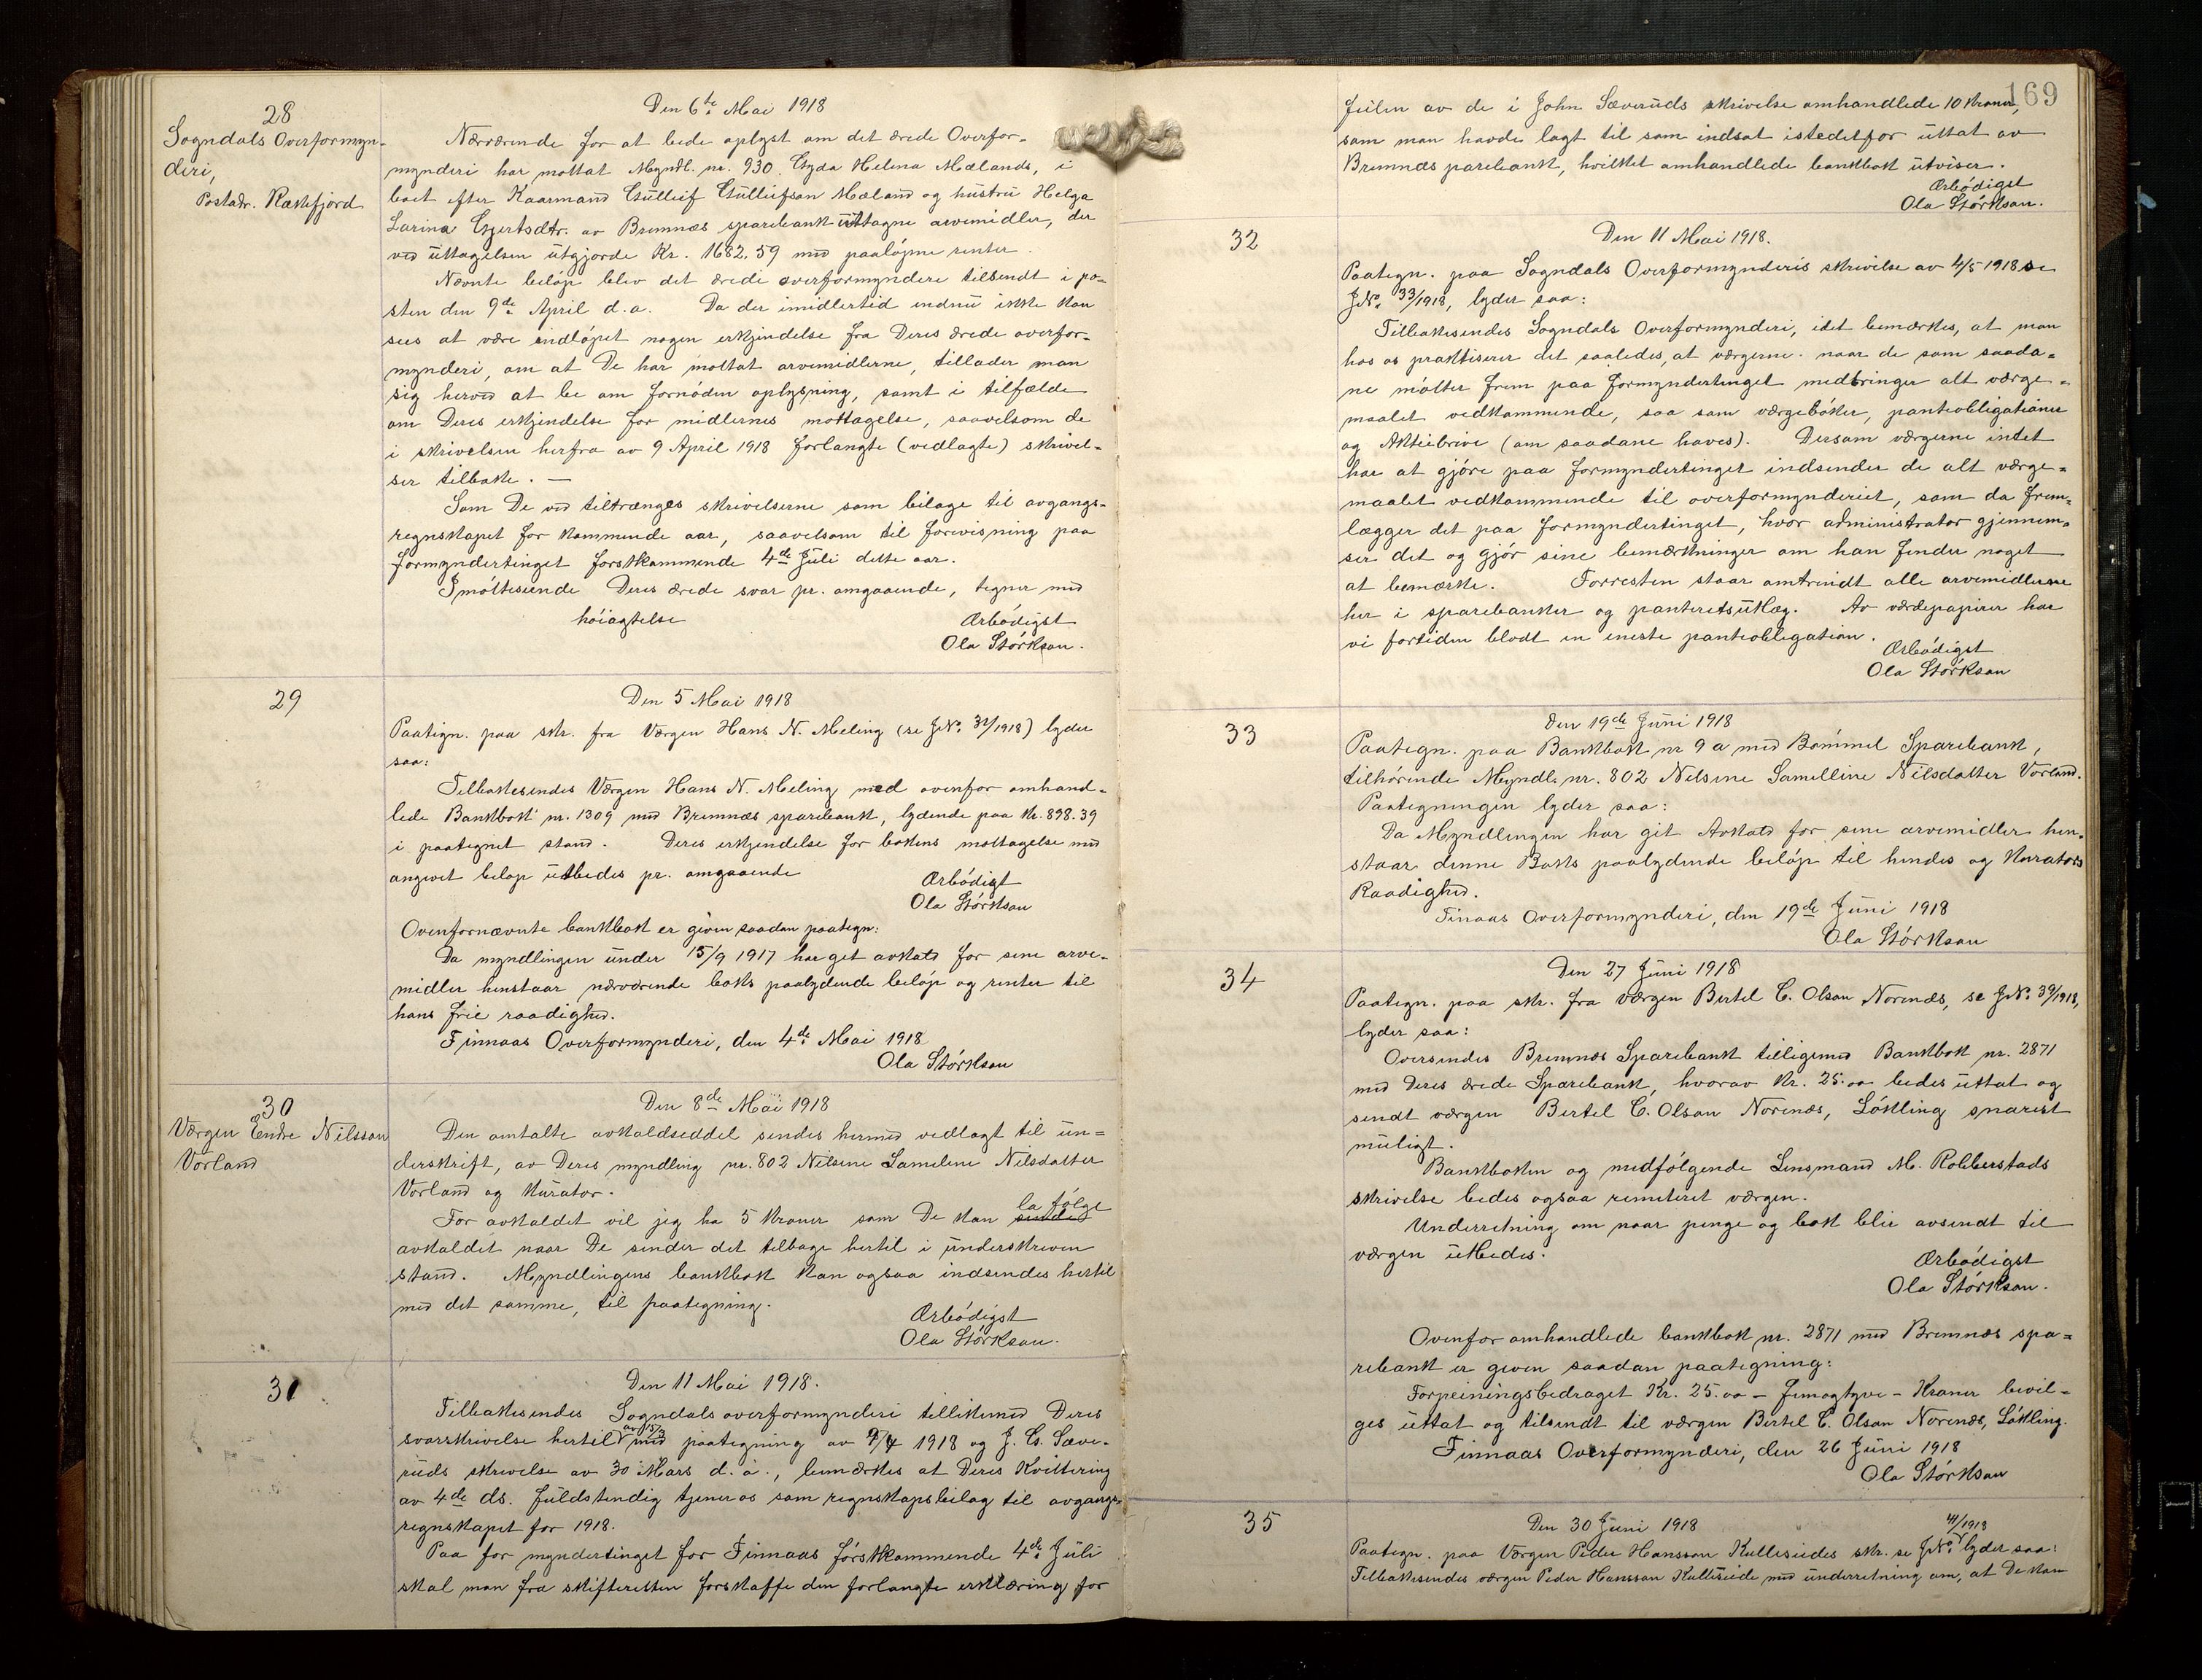 28
Sogndals Overformyn-
deri,
Postadr. Rækefjord
Den 6te Mai 1918
Nærværende for at bede oplyst om det ærede Overfor-
mynderi har mottat Myndl. nr. 930. Gyda Helena Mælands, i
boet efter Kaarmand Gulleif Gulleifsen Mæland og hustru Helga
Larina Gjertsdtr. av Bremnæs sparebank uttagne arvemidler, der
ved uttagelsen utgjorde Kr. 1682.59 med paaløpne renter.
Nævnte beløp blev det ærede overformynderi tilsendt i po-
sten den 9de April d.a. Da der imidlertid endnu ikke kan
sees at være indløpet nogen erkjendelse fra Deres ærede overfor-
mynderi, om at De har mottat arvemidlerne, tillader man
sig herved at be om fornøden oplysning, samt i tilfælde
om Deres erkjendelse for midlernes mottagelse, saavelsom de
i skrivelsen herfra av 9 April 1918 forlangte (vedlagte) skrivel-
ser tilbake. —
Som De ved tiltrænges skrivelserne som bilage til avgangs-
regnskapet for kommende aar, saavelsom til forevisning paa
formyndertinget førstkommende 4de Juli dette aar.
Imøteseende Deres ærede svar pr. omgaaende, tegner med
høiagtelse Ærbødigst
Ola Størkson.
29
Den 5 Mai 1918
Paategn. paa skr. fra Værgen Hans N. Meling (se J№ 32/1918) lyder
saa:
Tilbakesendes Værgen Hans N. Meling med ovenfor omhand-
lede Bankbok nr. 1309 med Bremnæs sparebank, lydende paa Kr. 898.39
i paategnet stand. Deres erkjendelse for bokens mottagelse med
angivet beløp utbedes pr. omgaaende
Ærbødigt
Ola Størkson
Ovenfornævnte bankbok er given saadan paategn:
Da myndlingen under 15/9 1917 har get avkald for sine arve-
midler henstaar nærværende boks paalydende beløp og renter til
hans frie raadighed.
Finnaas Overformynderi, den 4de Mai 1918
Ola Størkson
30
Værgen Endre Nilsson
Vorland
Den 8de Mai 1918
Den omtalte avkaldseddel sendes hermed vedlagt til un-
derskrift, av Deres myndling nr. 802 Nilsine Lamelene Nilsdatter
Vorland og Kurator.
For avkaldet vil jeg ha 5 Kroner som De kan sende la følge
avkaldet naar De sender det tilbage hertil i underskreven
stand. Myndlingens bankbok kan ogsaa indsendes hertil
med det samme, til paategning.
Ærbødigst
Ola Størkson.
31
Den 11 Mai 1918.
Tilbakesendes Sogndals overformynderi tillikemed Deres
svarskrivelse hertil med paategning av 9/4 1918 og J. G. Sæve-
ruds skrivelse av 30 Mars d.a., bemærkes at Deres Kvittering
av 4de ds. fuldstendig tjener os som regnskapsbilag til avgangs-
regnskapet for 1918.
Paa for myndertinget for Finnaas førstkommende 4de Juli
skal man fra skifteretten forskaffe den forlangte erklæring for
169
feilen av de i John Sæveruds skrivelse omhandlede 10 Kroner,
som man havde lagt til som indsat istedetfor uttat av
Bremnæs parebank, hvilket omhandlede bankbok utviser.
Ærbødigst
Ola Størkson.
32
Den 11 Mai 1918.
Paategn. paa Sogndals Overformynderis skrivelse av 4/5 1918 se
J№ 33/1918, lyder saa:
Tilbakesendes Sogndals Overformynderi, idet bemærkes, at man
hos os praktiserer det saaledes, at værgerne naar de som saada-
ne møtter frem paa formyndertinget medbringer alt værge-
maalet vedkommende, saa som værgebøker, panteobligationer
og Aktiebrive (om saadane haves). Dersom værgerne intet
har at gjøre paa formyndertinget indsender de alt værge-
maalet vedkommende til overformynderiet, som da frem-
lægger det paa formyndertinget, hvor administrator gjennem-
ser det og gjør sine bemærkninger om han finder noget
at bemærke. Forresten staar omtrindt alle arvemidlerne
her i sparebanker og panteretsutlæg. Av værdepapirer har
vi fortiden blodt en eneste panteobligation.
Ærbødigst
Ola Størkson
33
Den 19de Juni 1918
Paategn. paa Bankbok nr 9 a med Bømmel Sparebank,
tilhørende Myndl. nr. 802 Nilsine Lamelline Nilsdatter Vorland.
Paategningen lyder saa:
Da Myndlingen har git Avkald for sine arvemidler hen-
staar denne Boks paalydende beløp til hendes og Kurators
Raadighed.
Finaas Overformynderi, den 19de Juni 1918
Ola Størkson
34
Den 27 Juni 1918
Paategn. paa skr. fra værgen Bertel C. Olson Norenæs, se J№ 39/1918,
lyder saa:
Oversendes Bremnæs Sparebank tilligemed Bankbok nr. 2871
med Deres ærede Sparebank, hvorav Kr. 25.oo bedes uttat og
sendt værgen Bertel C. Olson Norenæs, Løkling snarest
muligt.
Bankboken og medfølgende Lensmand M. Robberstads
skrivelse bedes ogsaa remiteret værgen.
Underretning om naar penge og bok blir avsendt til
værgen utbedes.
Ærbødigst
Ola Størkson.
Ovenfor omhandlede bankbok nr. 2871 med Bremnæs spa-
rebank er given saadan paategning:
Forpeiningsbedraget Kr. 25.oo - femogtyve - Kroner bevil-
ges uttat og tilsendt til værgen Bertel C. Olson Norenæs, Løkling.
Finnaas Overformynderi, den 26 Juni 1918
Ola Størkson
35
Den 30 Juni 1918
Paategn. paa Værgen Peder Hansson Kulleseides skr. se J№ 41/1918 lyder saa:
Tilbakesendes værgen Peder Hansson Kulleseide med underretning om, at De kan